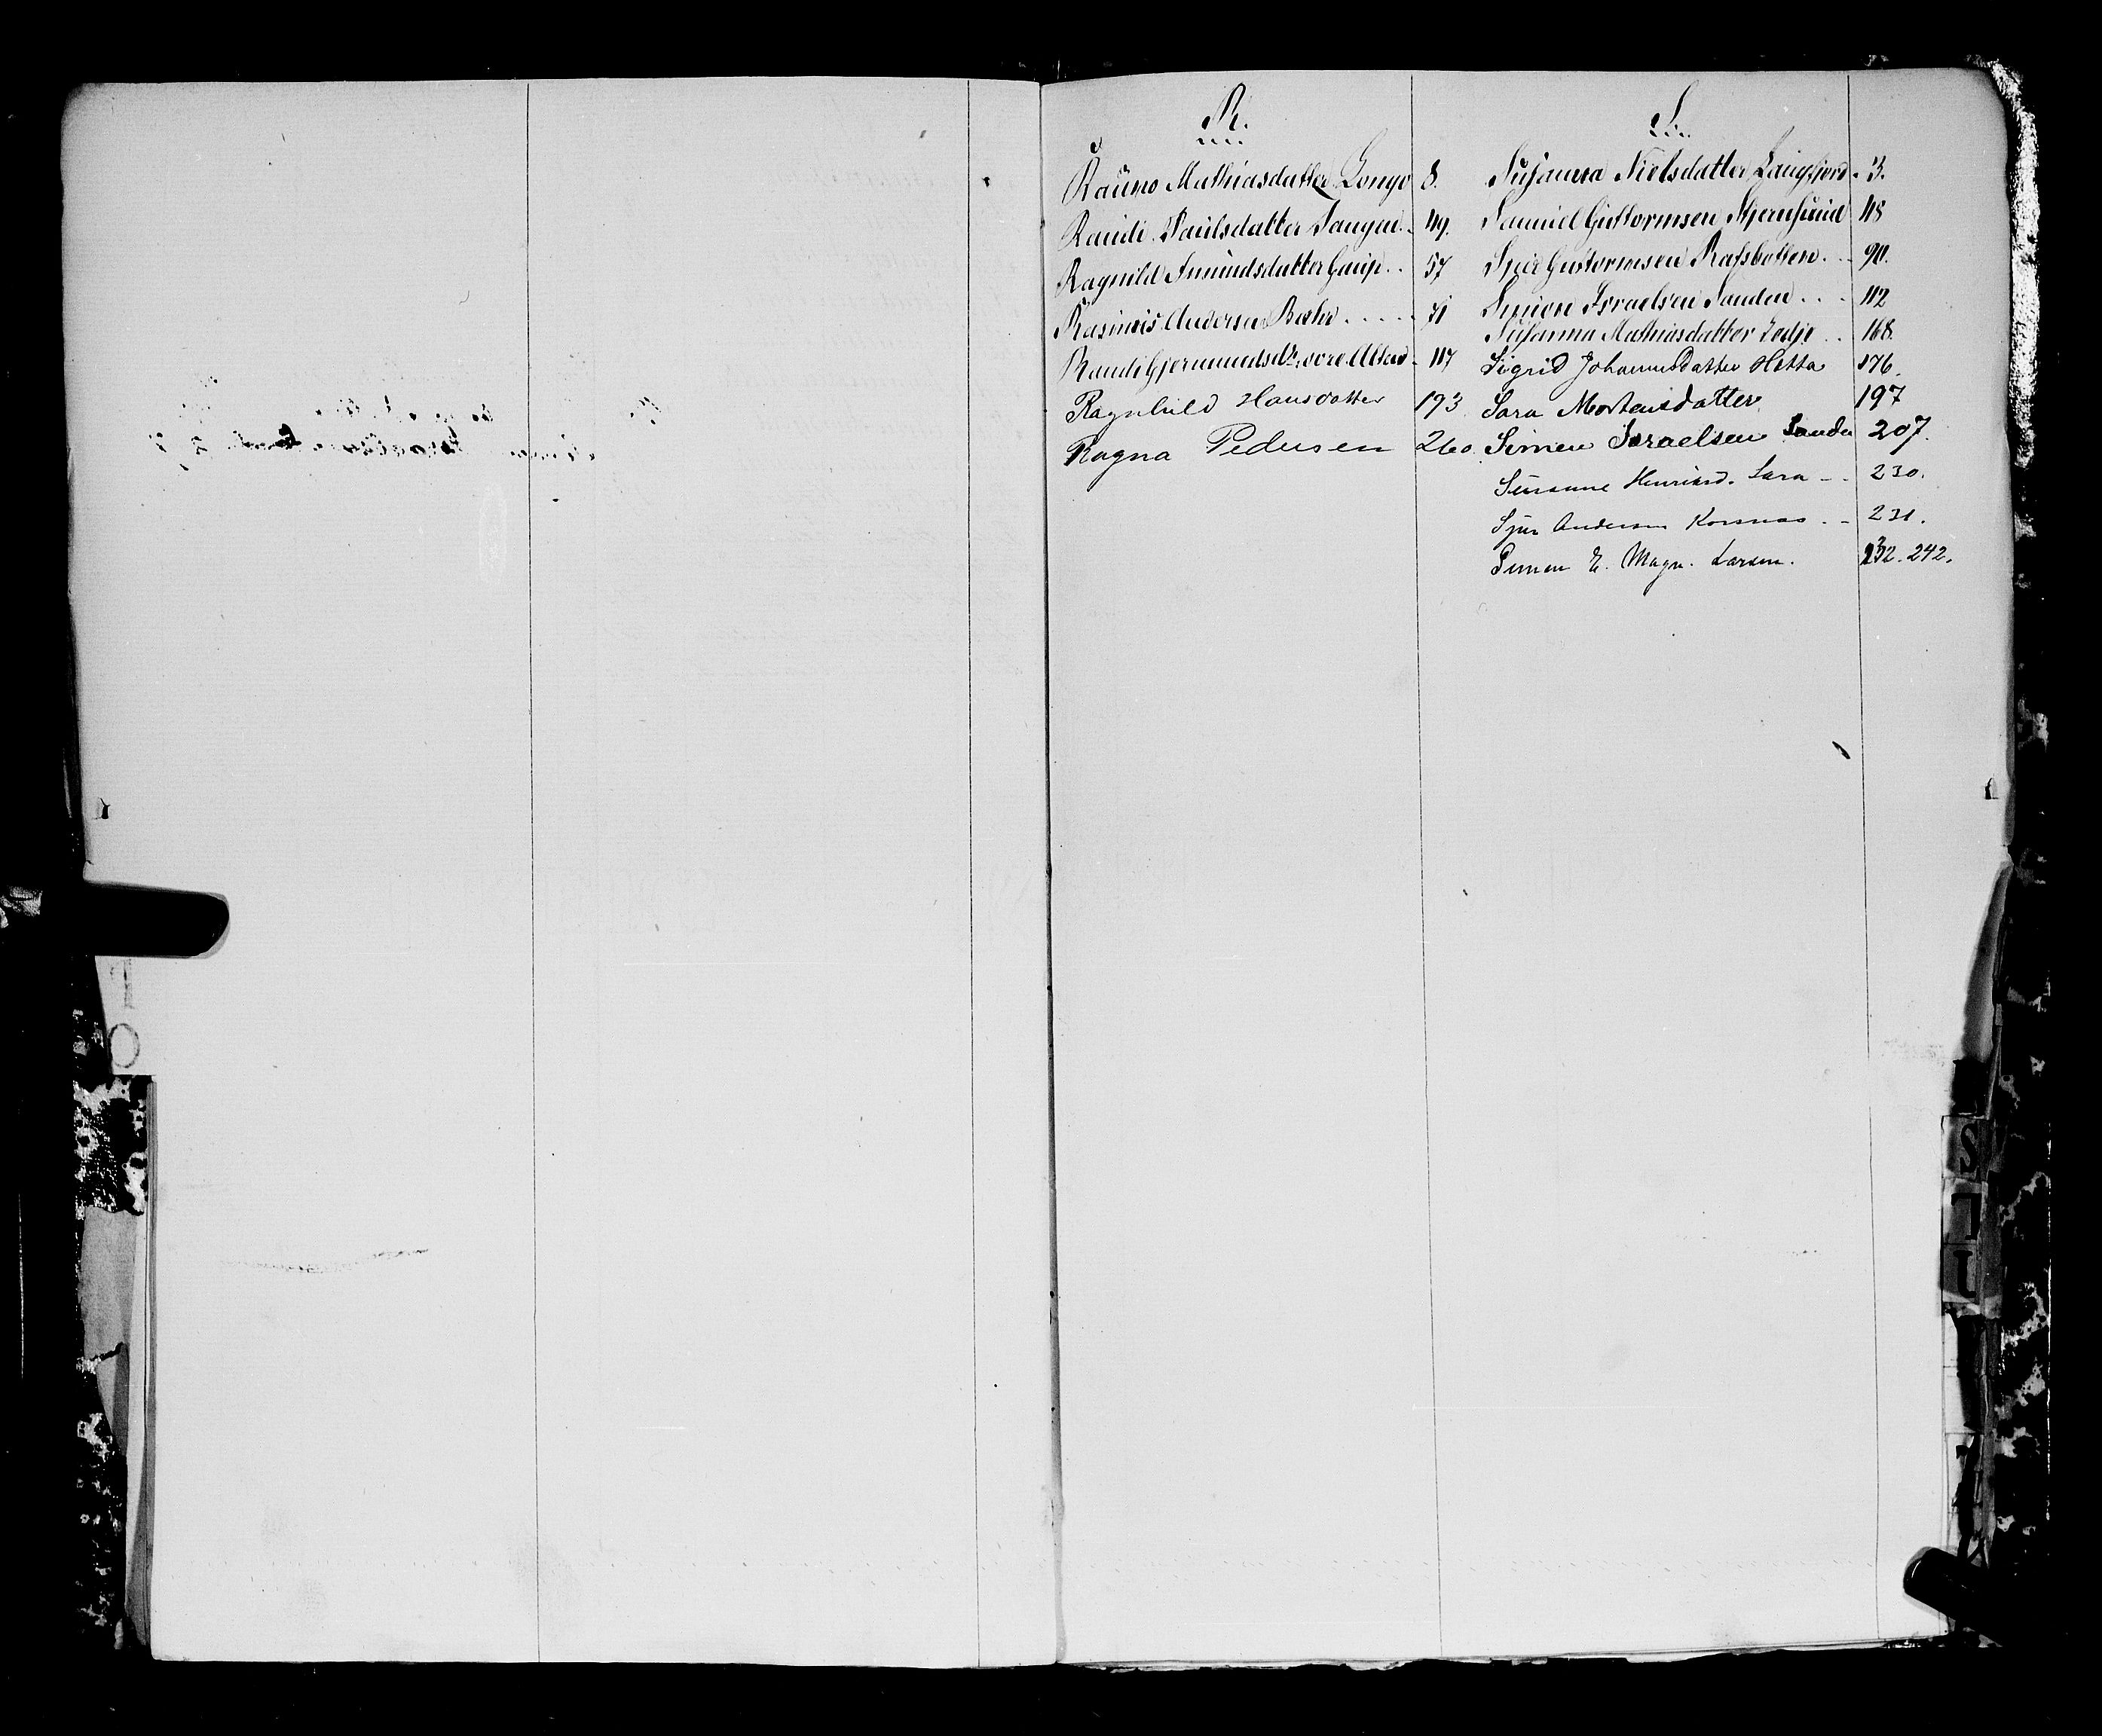 R.
Rauno Mathiasdatter Longo 8.
Randi Paulsdatter Tangen 49.
Ragnild Amundsdatter Gaup 57
Rasmus Andersen Bæhr 71
Randi Gjermundsdtr. øvre Alten 117
Ragnhild Hansdatter 193
Ragna Pedersen 260.
S.
Susanna Nielsdatter Langfjord 3.
Samuel Guttormsen Stjernsund 48
Sjur Guttormsen Rafsbotten 90.
Simon Israelsen Sanden 112
Susanna Mathiasdatter 168.
Sigrid Johannesdatter Hætta 176.
Sara Mortensdatter 197
Simen Israelsen Sanden 207.
Susanne Henriksd. Sara 230.
Sjur Andersen Korsnæs 231.
Simen E. Magn. Larsen. 232. 242.
S
T